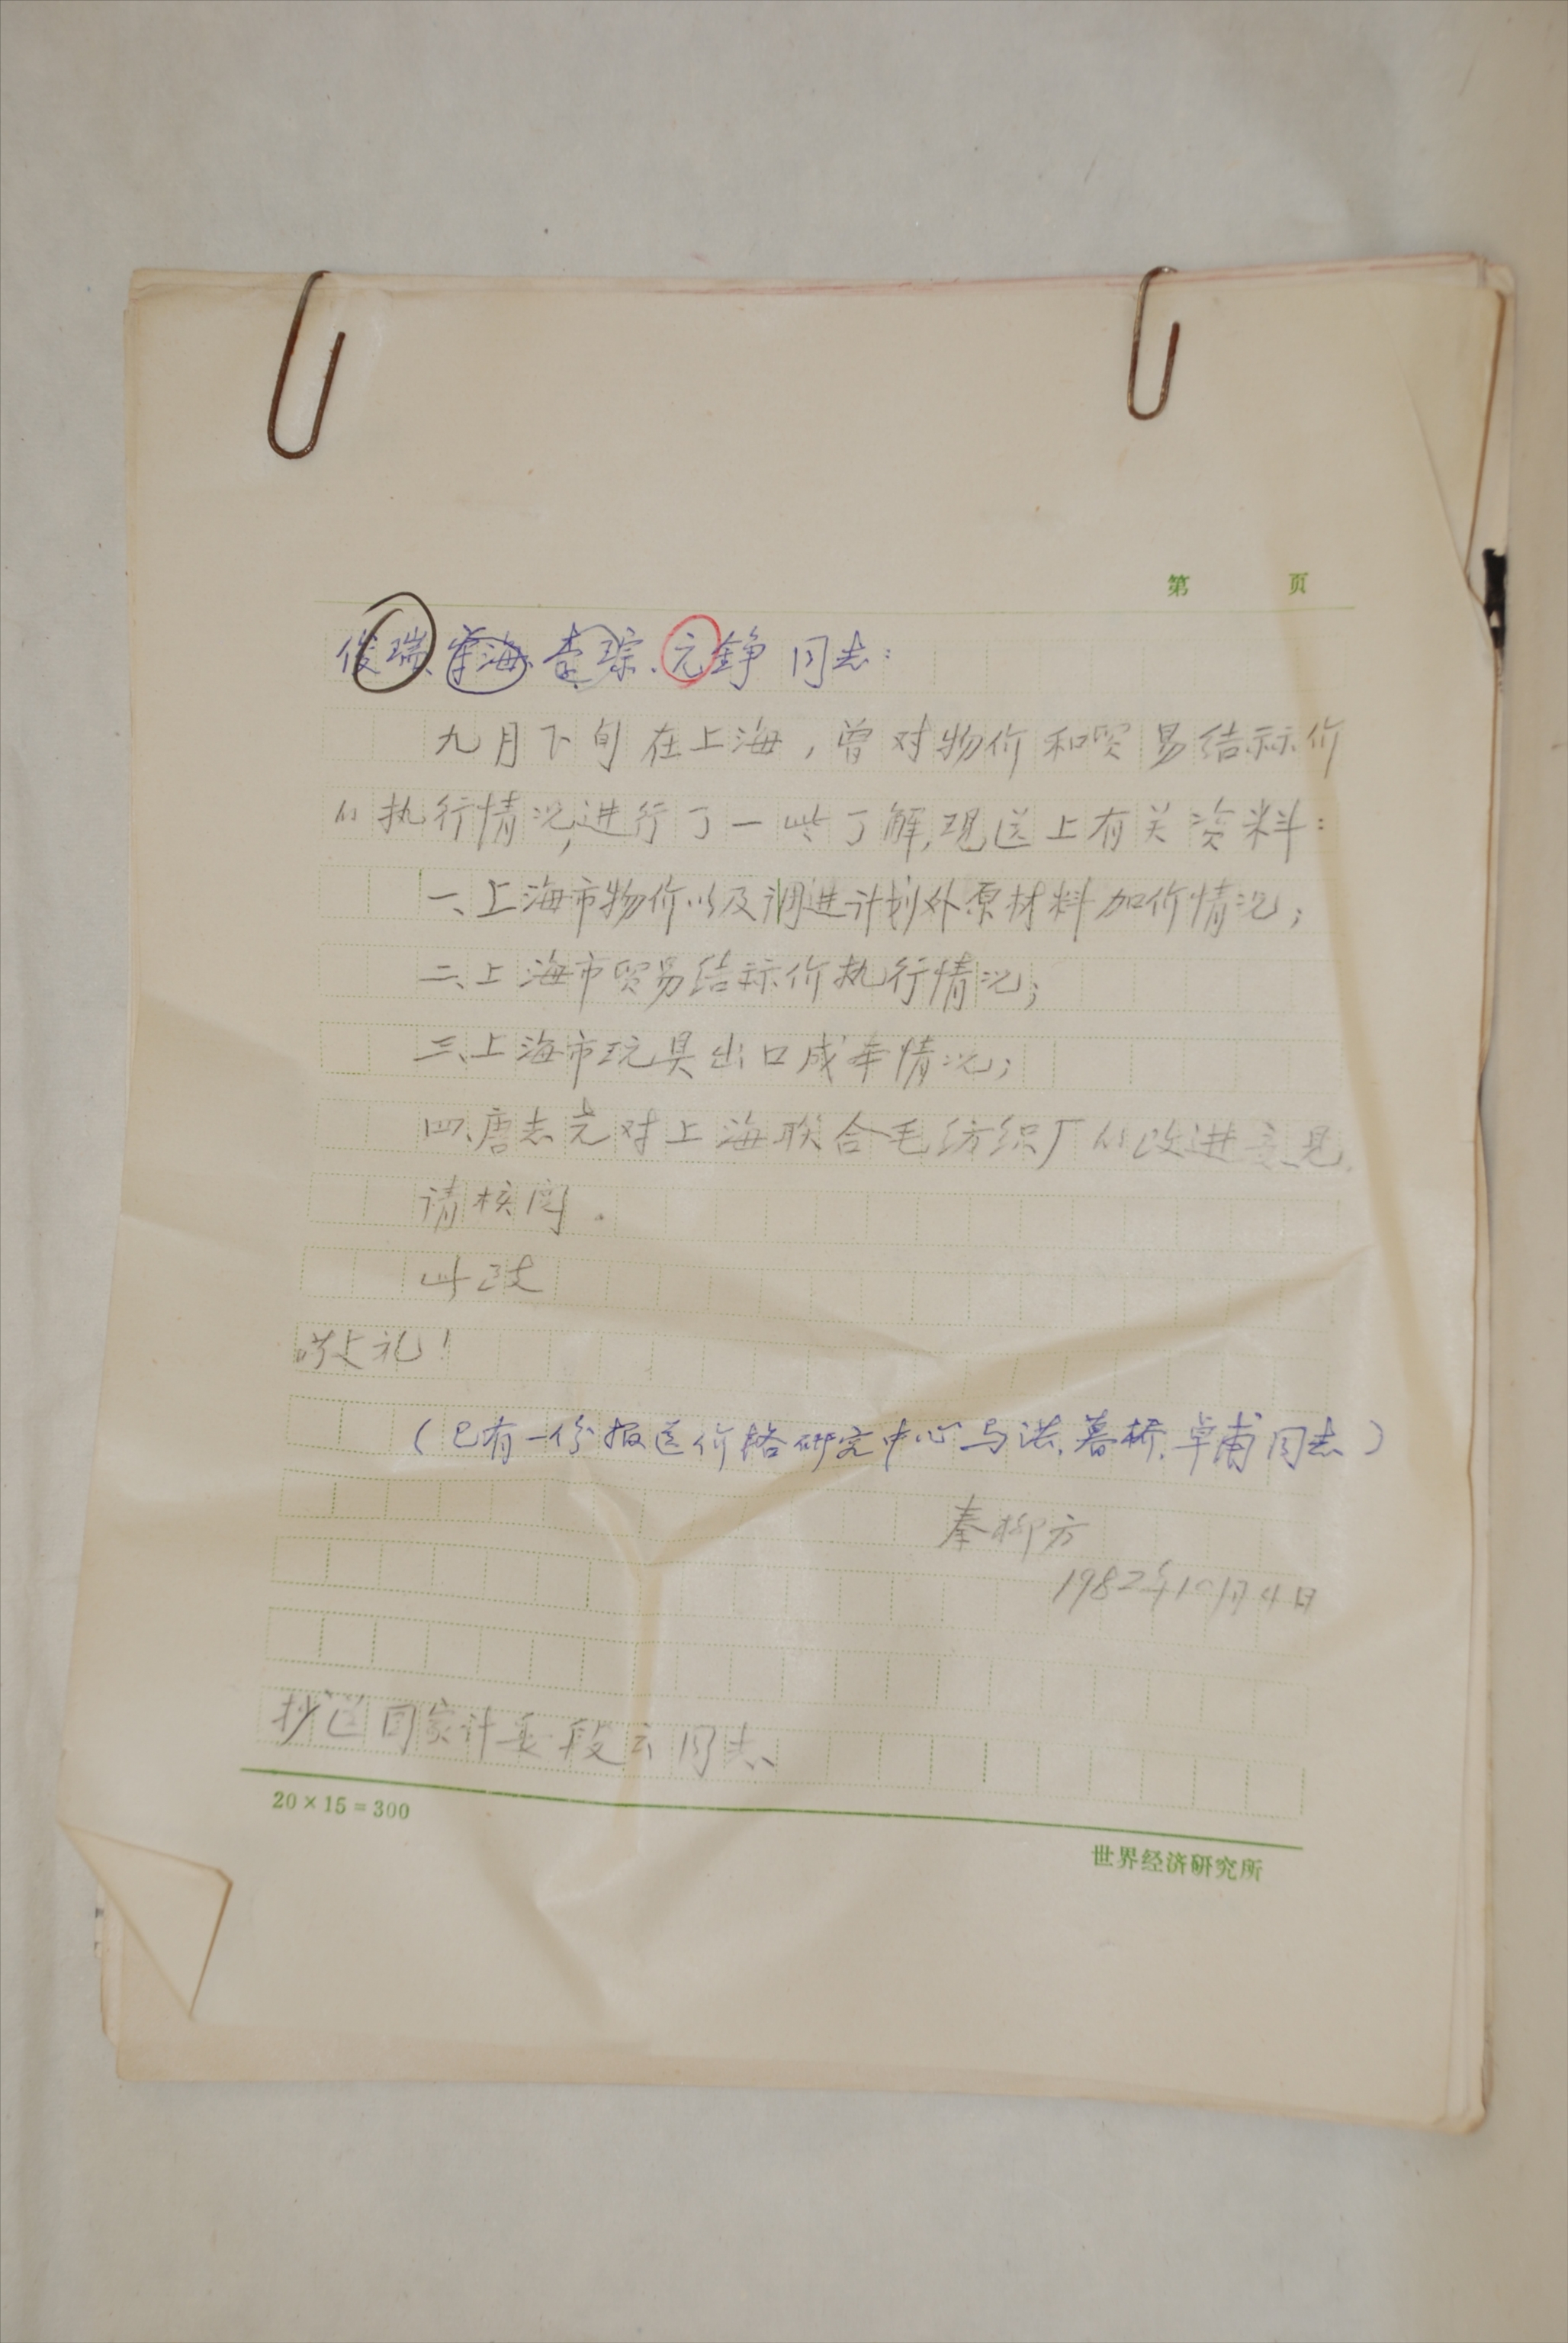 第 页
俊瑞、守海、李琮、元铮同志:
九月下旬在上海,曾对物价和贸易结标价
的执行情况,进行了一些了解,现送上有关资料:
一、上海市物价以及调进计划外原材料加价情况;
二、上海市贸易结标价执行情况;
三、上海市玩具出口成本情况;
四、唐志尧对上海联合毛纺织厂的改进意见,
请核阅。
此致
敬礼!
(已有一份报送价格研究中心与洪、暮桥、卓甫同志)
秦柳方
1982年10月4日
抄送国家计委段云同志
20×15=300
世界经济研究所